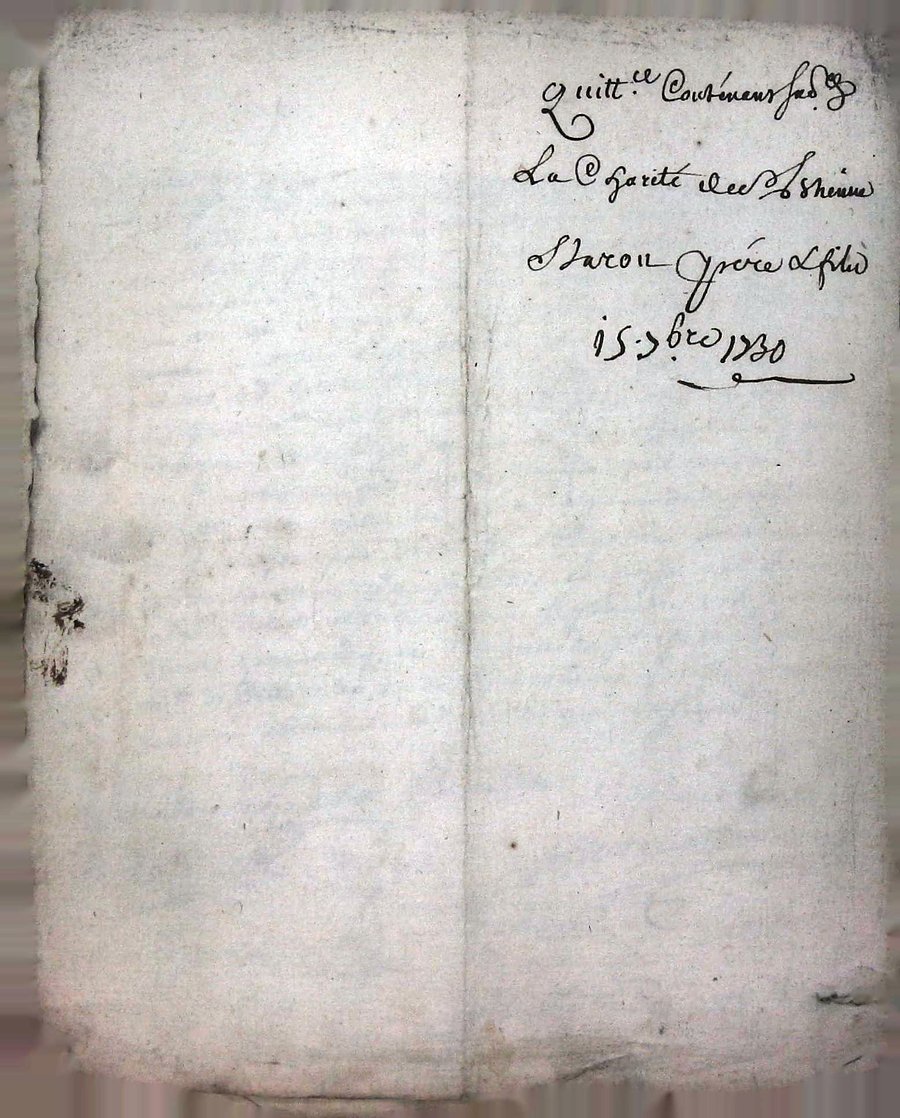 Quitt.ce Contenant
La Charité de St Ethienne
Staron père & fils
15. 7bre 1730